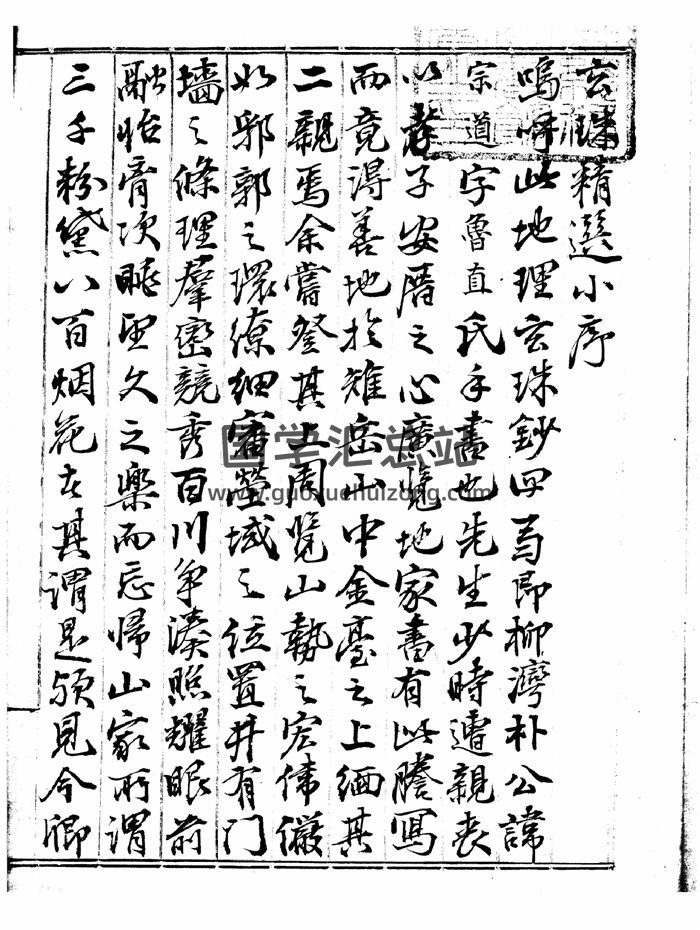 玄珠精選小序
嗚呼此地理玄珠鈔四写即柳灣朴公諱
宗道字魯直氏手書也先生少時遭親喪
以孝子安厝之心廣览地家書有此謄寫
而竟得善地於雉岳山中金臺之上緬其
二親焉余嘗登其上周覽山勢之宏偉儼
如郛郭之環繚细審塋域之位置井有门
墻之條理羣巒競秀百川争湊照耀眼前
融怡膏次眺望久之樂而忘歸山家所謂
三千粉黛八百烟花者其謂是歟見今卿
国学汇总站
www.guoxuehuizong.com